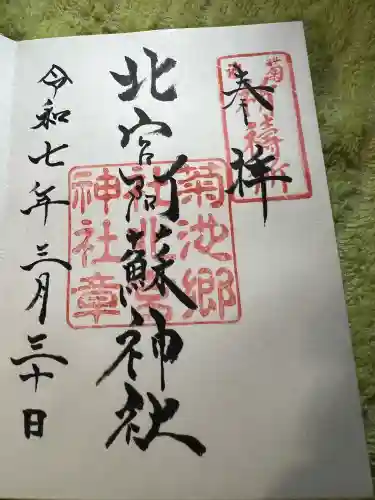 奉拝
北宮阿蘇神社
令和七年三月三十日
菊池郷
社北宮
神社章